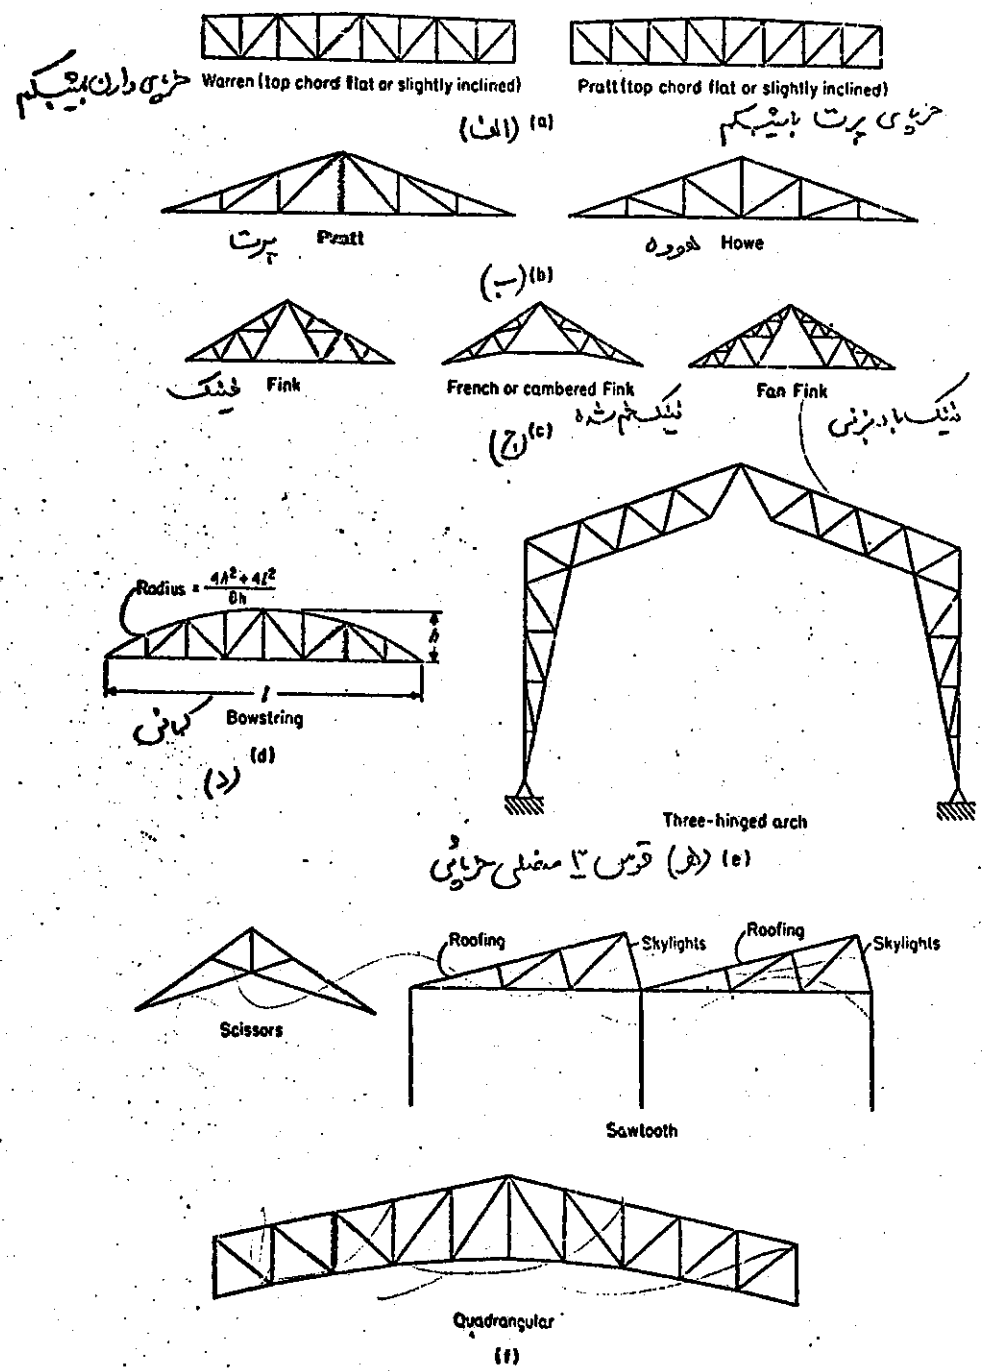 Warren (top chord flat or slightly inclined)
Pratt (top chord flat or slightly inclined)
خرپای وارن با شیب کم
خرپای پرت با شیب کم
(الف) (a)
پرت Pratt
هووه Howe
(ب) (b)
فینک Fink
French or cambered Fink
فینک خم شده
Fan Fink
فینک بادبزنی
(ج) (c)
Radius = (4h² + 4l²) / 8h
h
l
Bowstring
کمانی
(d)
(د)
Three-hinged arch
قوس ۳ مفصلی خرپائی (ه) (e)
Roofing
Skylights
Roofing
Skylights
Scissors
Sawtooth
Quadrangular
(f)